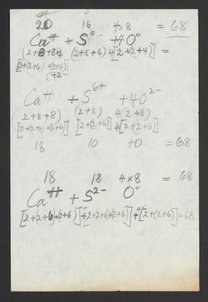 20 16 4×8 = 68
Ca++ + S° + 4O°
(2+8+8+2) (2+8+6) 4[2+2+4] =
[2+2+6]
Ca++ + S6+ + 4O2-
(2+8+8) (2+8) 4(2+8)
[2+2+6] [2+2+6] 4[2+2+6]
18 10 40 = 68
18 18 4×8 = 68
Ca++ S2- O°
[2+2+6+2+6] [2+2+6+2+6] 4[2+(2+6)] = 68